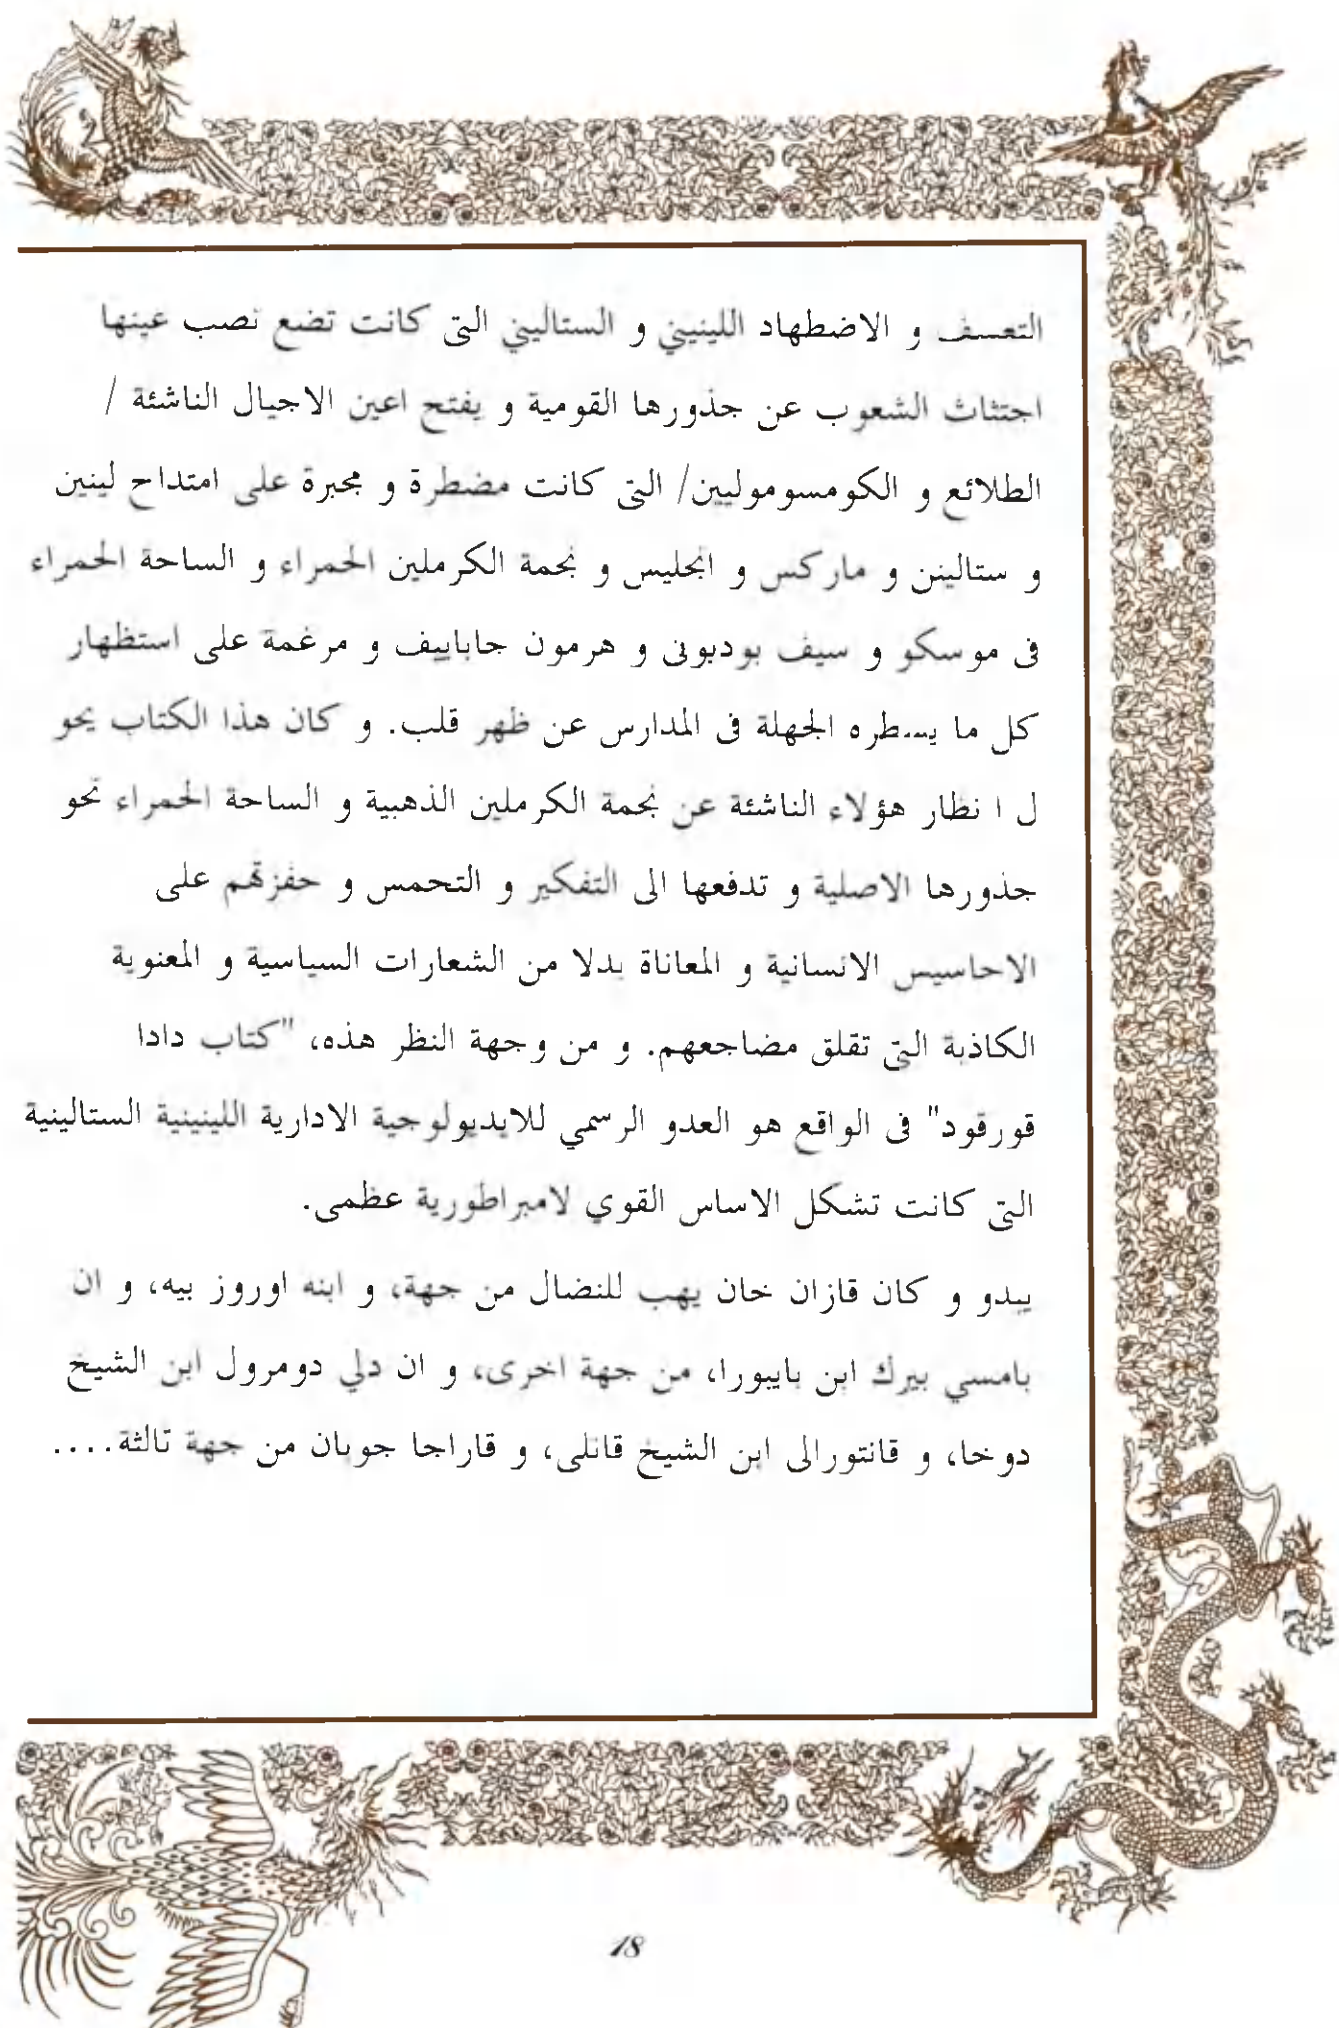 التعسف و الاضطهاد اللينيني و الستاليني التى كانت تضع نصب عينها
اجتثاث الشعوب عن جذورها القومية و يفتح اعين الاجيال الناشئة /
الطلائع و الكومسوموليين/ التى كانت مضطرة و مجبرة على امتداح لينين
و ستالينن و ماركس و انجليس و نجمة الكرملين الحمراء و الساحة الحمراء
فى موسكو و سيف بوديونى و هرمون جاباييف و مرغمة على استظهار
كل ما يسطره الجهلة فى المدارس عن ظهر قلب. و كان هذا الكتاب يحو
ل ا نظار هؤلاء الناشئة عن نجمة الكرملين الذهبية و الساحة الحمراء نحو
جذورها الاصلية و تدفعها الى التفكير و التحمس و حفزتهم على
الاحاسيس الانسانية و المعاناة بدلا من الشعارات السياسية و المعنوية
الكاذبة التى تقلق مضاجعهم. و من وجهة النظر هذه، "كتاب دادا
قورقود" فى الواقع هو العدو الرسمي للايديولوجية الادارية اللينينية الستالينية
التى كانت تشكل الاساس القوي لامبراطورية عظمى.
يبدو و كان قازان خان يهب للنضال من جهة، و ابنه اوروز بيه، و ان
بامسي بيرك ابن بايبورا، من جهة اخرى، و ان دلي دومرول ابن الشيخ
دوخا، و قانتورالى ابن الشيخ قانلى، و قاراجا جوبان من جهة ثالثة....
18